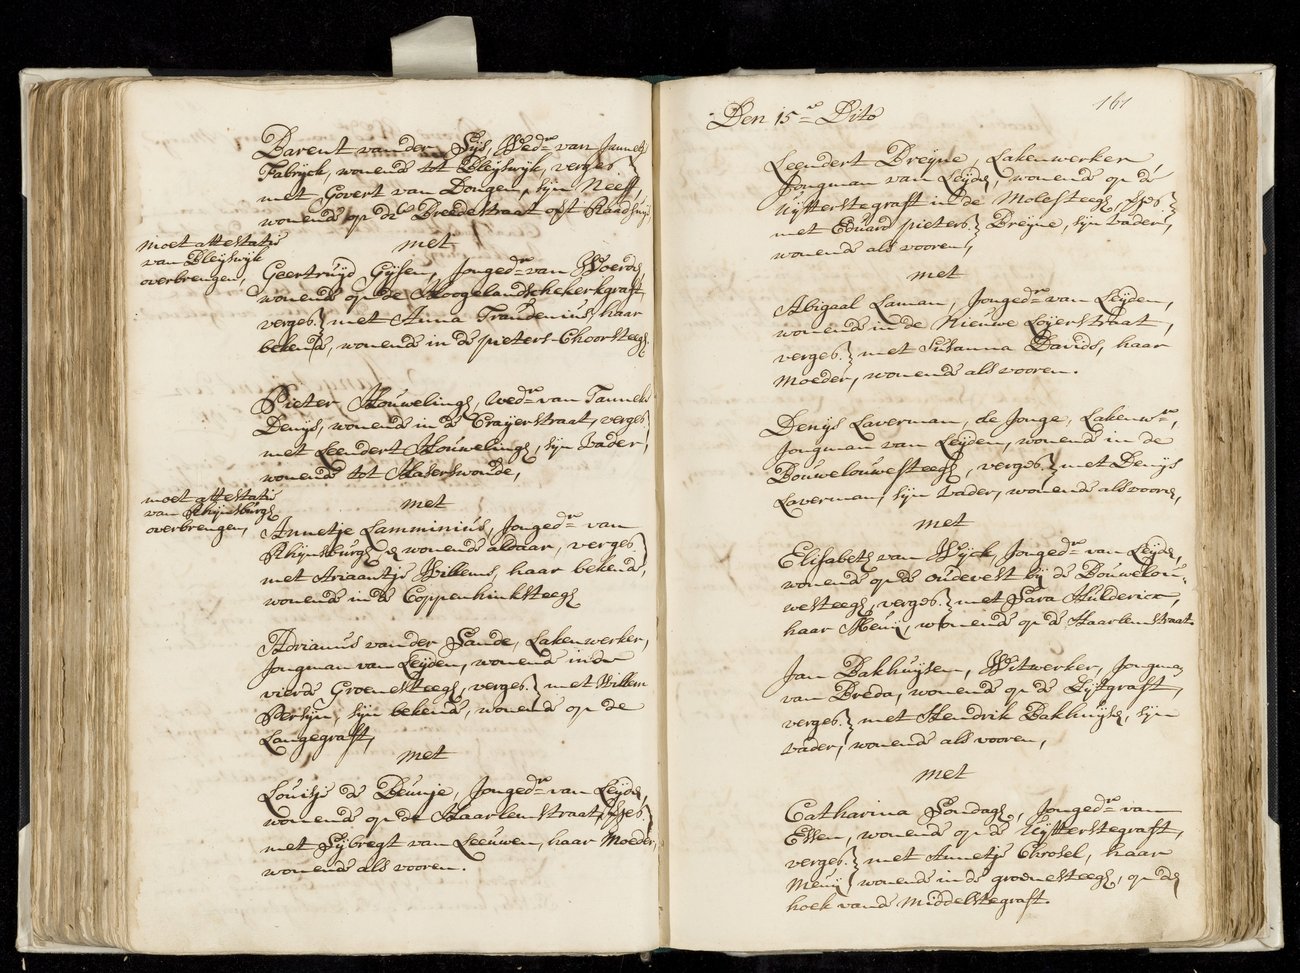 Barent van der Sijs, Wed.r van Jannetje
Fabrijck, wonende tot Bleijswijk, verges.
met Govert van Dongen, sijn Neeff,
wonende op de Breedestraat opt Raadhuijs
met
moet attestatie
van Bleijswijk
overbrengen,
Geertruijd Gijsen, Jonged.r van Woerden,
wonende op de Hoogelandschekerkgraft,
verges. met Anna Trandenius, haar
bekende, wonende in de pieters-Choorsteeg
Pieter Houweling, Wed.r van Tanneke
Denijs, wonende in de Craijerstraat, verges.
met Leendert Houweling, sijn Vader,
wonende tot Haserswoude,
met
moet attestatie
van Rhijnsburg
overbrengen,
Annetje Lamminius, Jonged.r van
Rhijnsburg, wonende aldaar, verges.
met Ariaantje Willems, haar bekende,
wonende in de Coppenhinksteeg
Adrianus van der Sande, Lakenwerker,
Jongman van Leijden, wonende in de
vierde Groenesteeg, verges. met Willem
Persijn, sijn bekende, wonende op de
Langegraft,
met
Louisje de Deunje, Jonged.r van Leijden,
wonende op de Haarlemstraat, verges.
met Sijbregt van Leeuwen, haar Moeder,
wonende als vooren.
161
Den 15.e Dito
Leendert Dreijne, Lakenwerker,
Jongman van Leijden, wonende op de
Uijtterstegraft in de Molesteeg, verges.
met Eduard pieters. Dreijne, sijn vader,
wonende als vooren,
met
Abigaal Laman, Jonged.r van Leijden,
wonende in de Nieuwe Loijerstraat,
verges. met Susanna Davids, haar
Moeder, wonende als vooren.
Denijs Laverman, de Jonge, Lakenw.r,
Jongman van Leijden, wonende in de
Bouwelouwesteeg, verges. met Denijs
Laverman, sijn Vader, wonende als vooren,
met
Elisabeth van Wijck, Jonged.r van Leijden,
wonende op de oudevest bij de Bouwelou-
westeeg, verges. met Sara Hulderick,
haar Meuij, wonende op de Haarlemstraat
Jan Bakhuijsen, Witwerker, Jongman
van Breda, wonende op de Zijtgraft,
verges. met Hendrik Bakhuijsen, sijn
Vader, wonende als vooren,
met
Catharina Sondag, Jonged.r van
Essen, wonende op de Uijtterstegraft,
verges. met Annetje Chrosel, haar
Meuij, wonende in de groenesteeg, op de
hoek van de Middelstegraft.